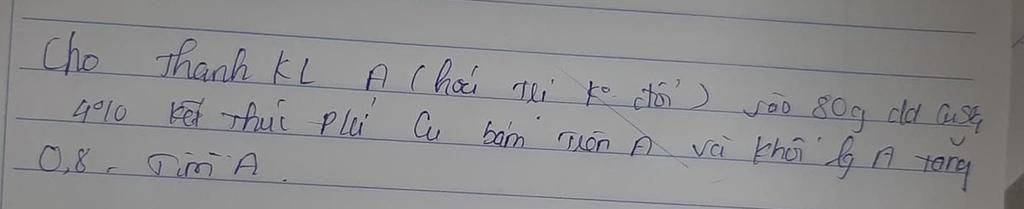 Cho thanh KL A (hoá trị ko đổi) vào 80g dd CuSO4
4% kết thúc pứ Cu bám trên A và khối lg A tăng
0,8. Tìm A.